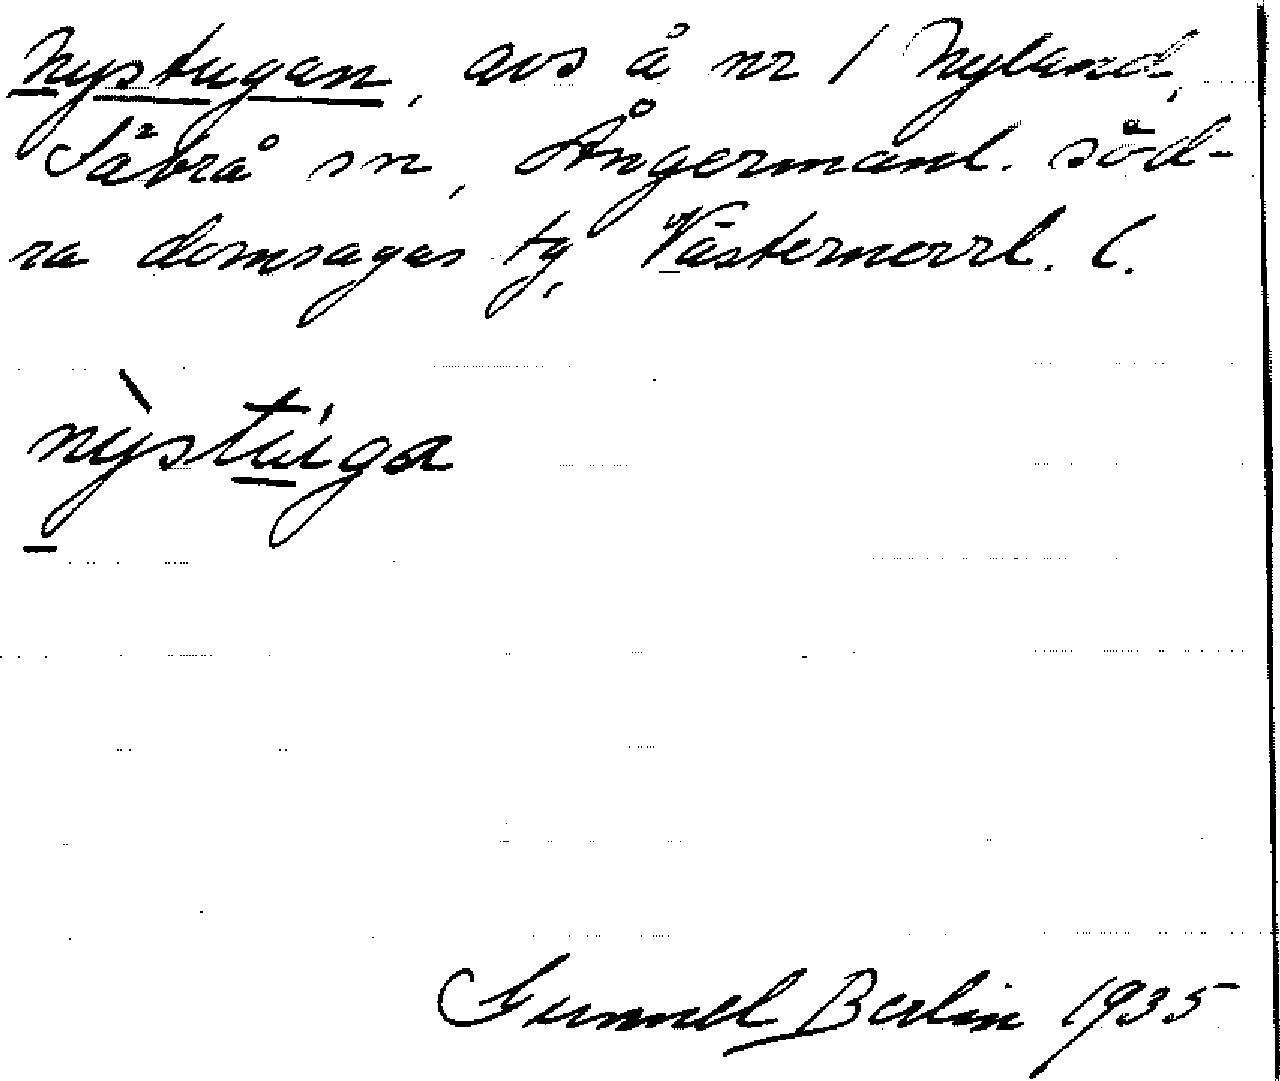 Nystugan, avs å nr 1 Nyland,
Säbrå sn, Ångermanl. söd-
ra domsagas tg, Västernorrl. l.
nỳstúga
Gunnel Berlin 1935